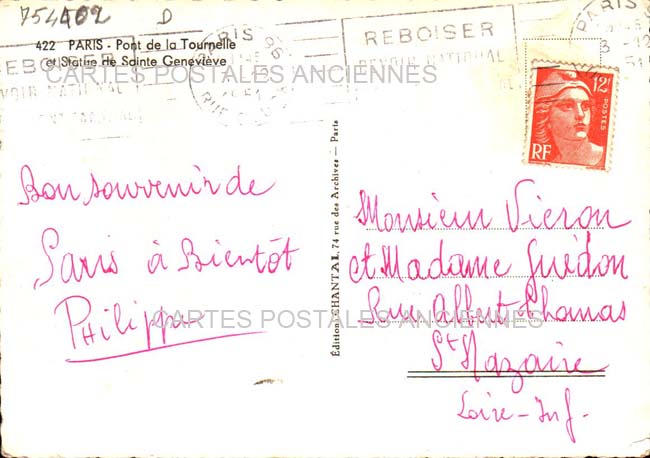 754402 D
422 PARIS - Pont de la Tournelle
et Statue de Sainte Geneviève
CARTES POSTALES ANCIENNES
REBOISER
NATIONAL
PARIS 96
RUE
REBOISER
DEVOIR NATIONAL
PARIS
12F
POSTES
RF
Bon souvenir de
Paris à Bientôt
Philippe
CARTES POSTALES ANCIENNES
Editions CHANTAL, 74 rue des Archives — Paris
Monsieur Vieron
et Madame Guédon
Rue Albert-Thomas
St Nazaire
Loire-Inf.